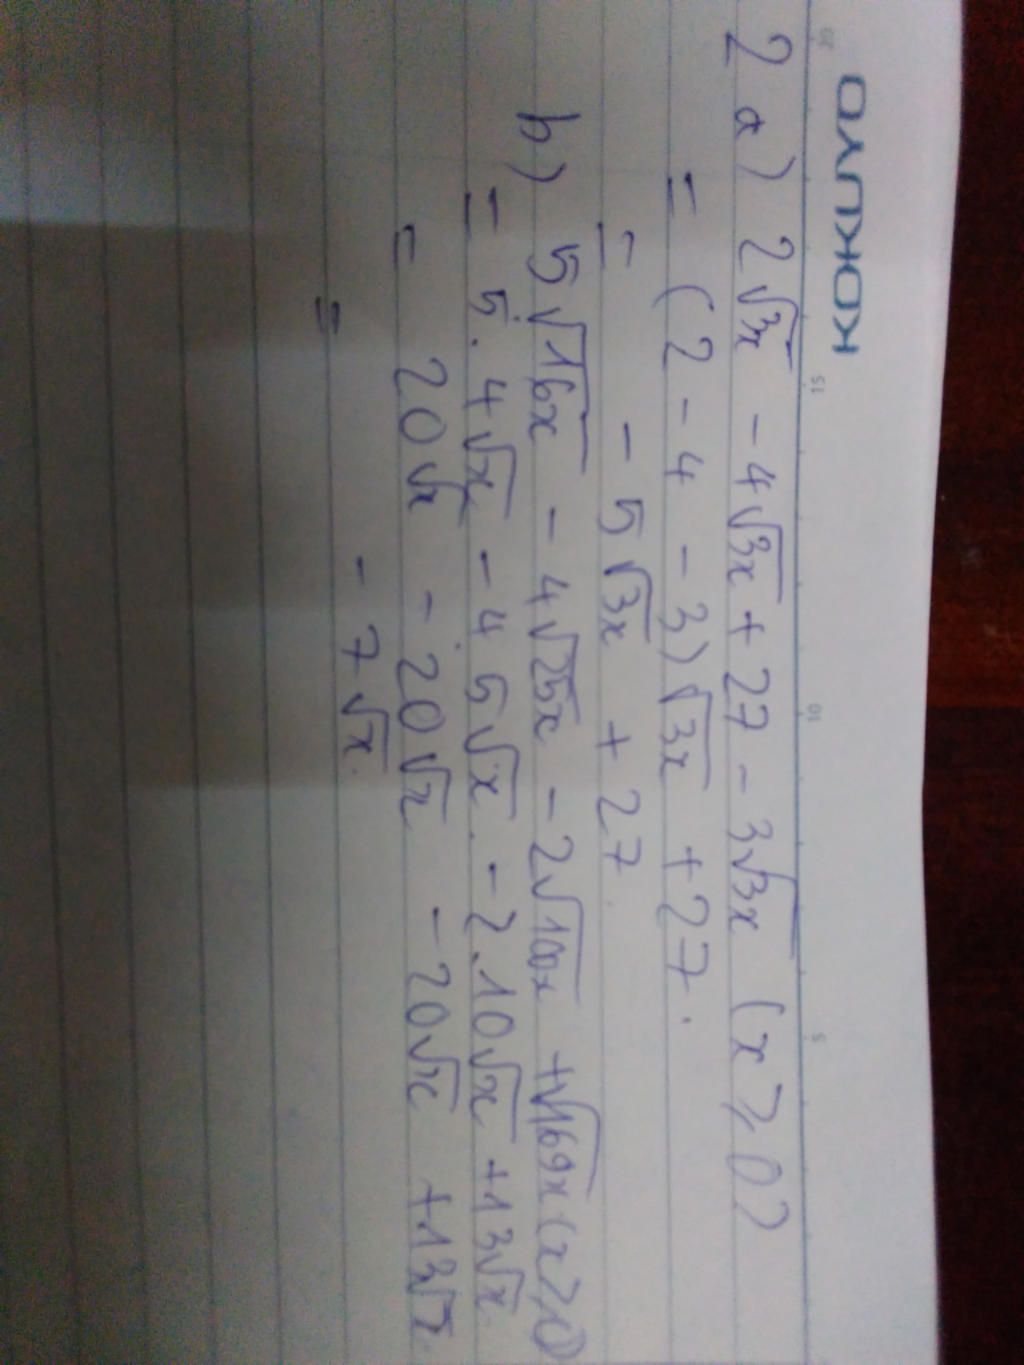 KOKUYO
20 15 10 5
2 a) 2√3x - 4√3x + 27 - 3√3x (x ≥ 0)
= (2 - 4 - 3)√3x + 27.
= - 5√3x + 27.
b) 5√16x - 4√25x - 2√100x + √169x (x ≥ 0)
= 5. 4√x - 4 5√x. - 2.10√x + 13√x.
= 20√x - 20√x - 20√x + 13√x
= - 7√x.